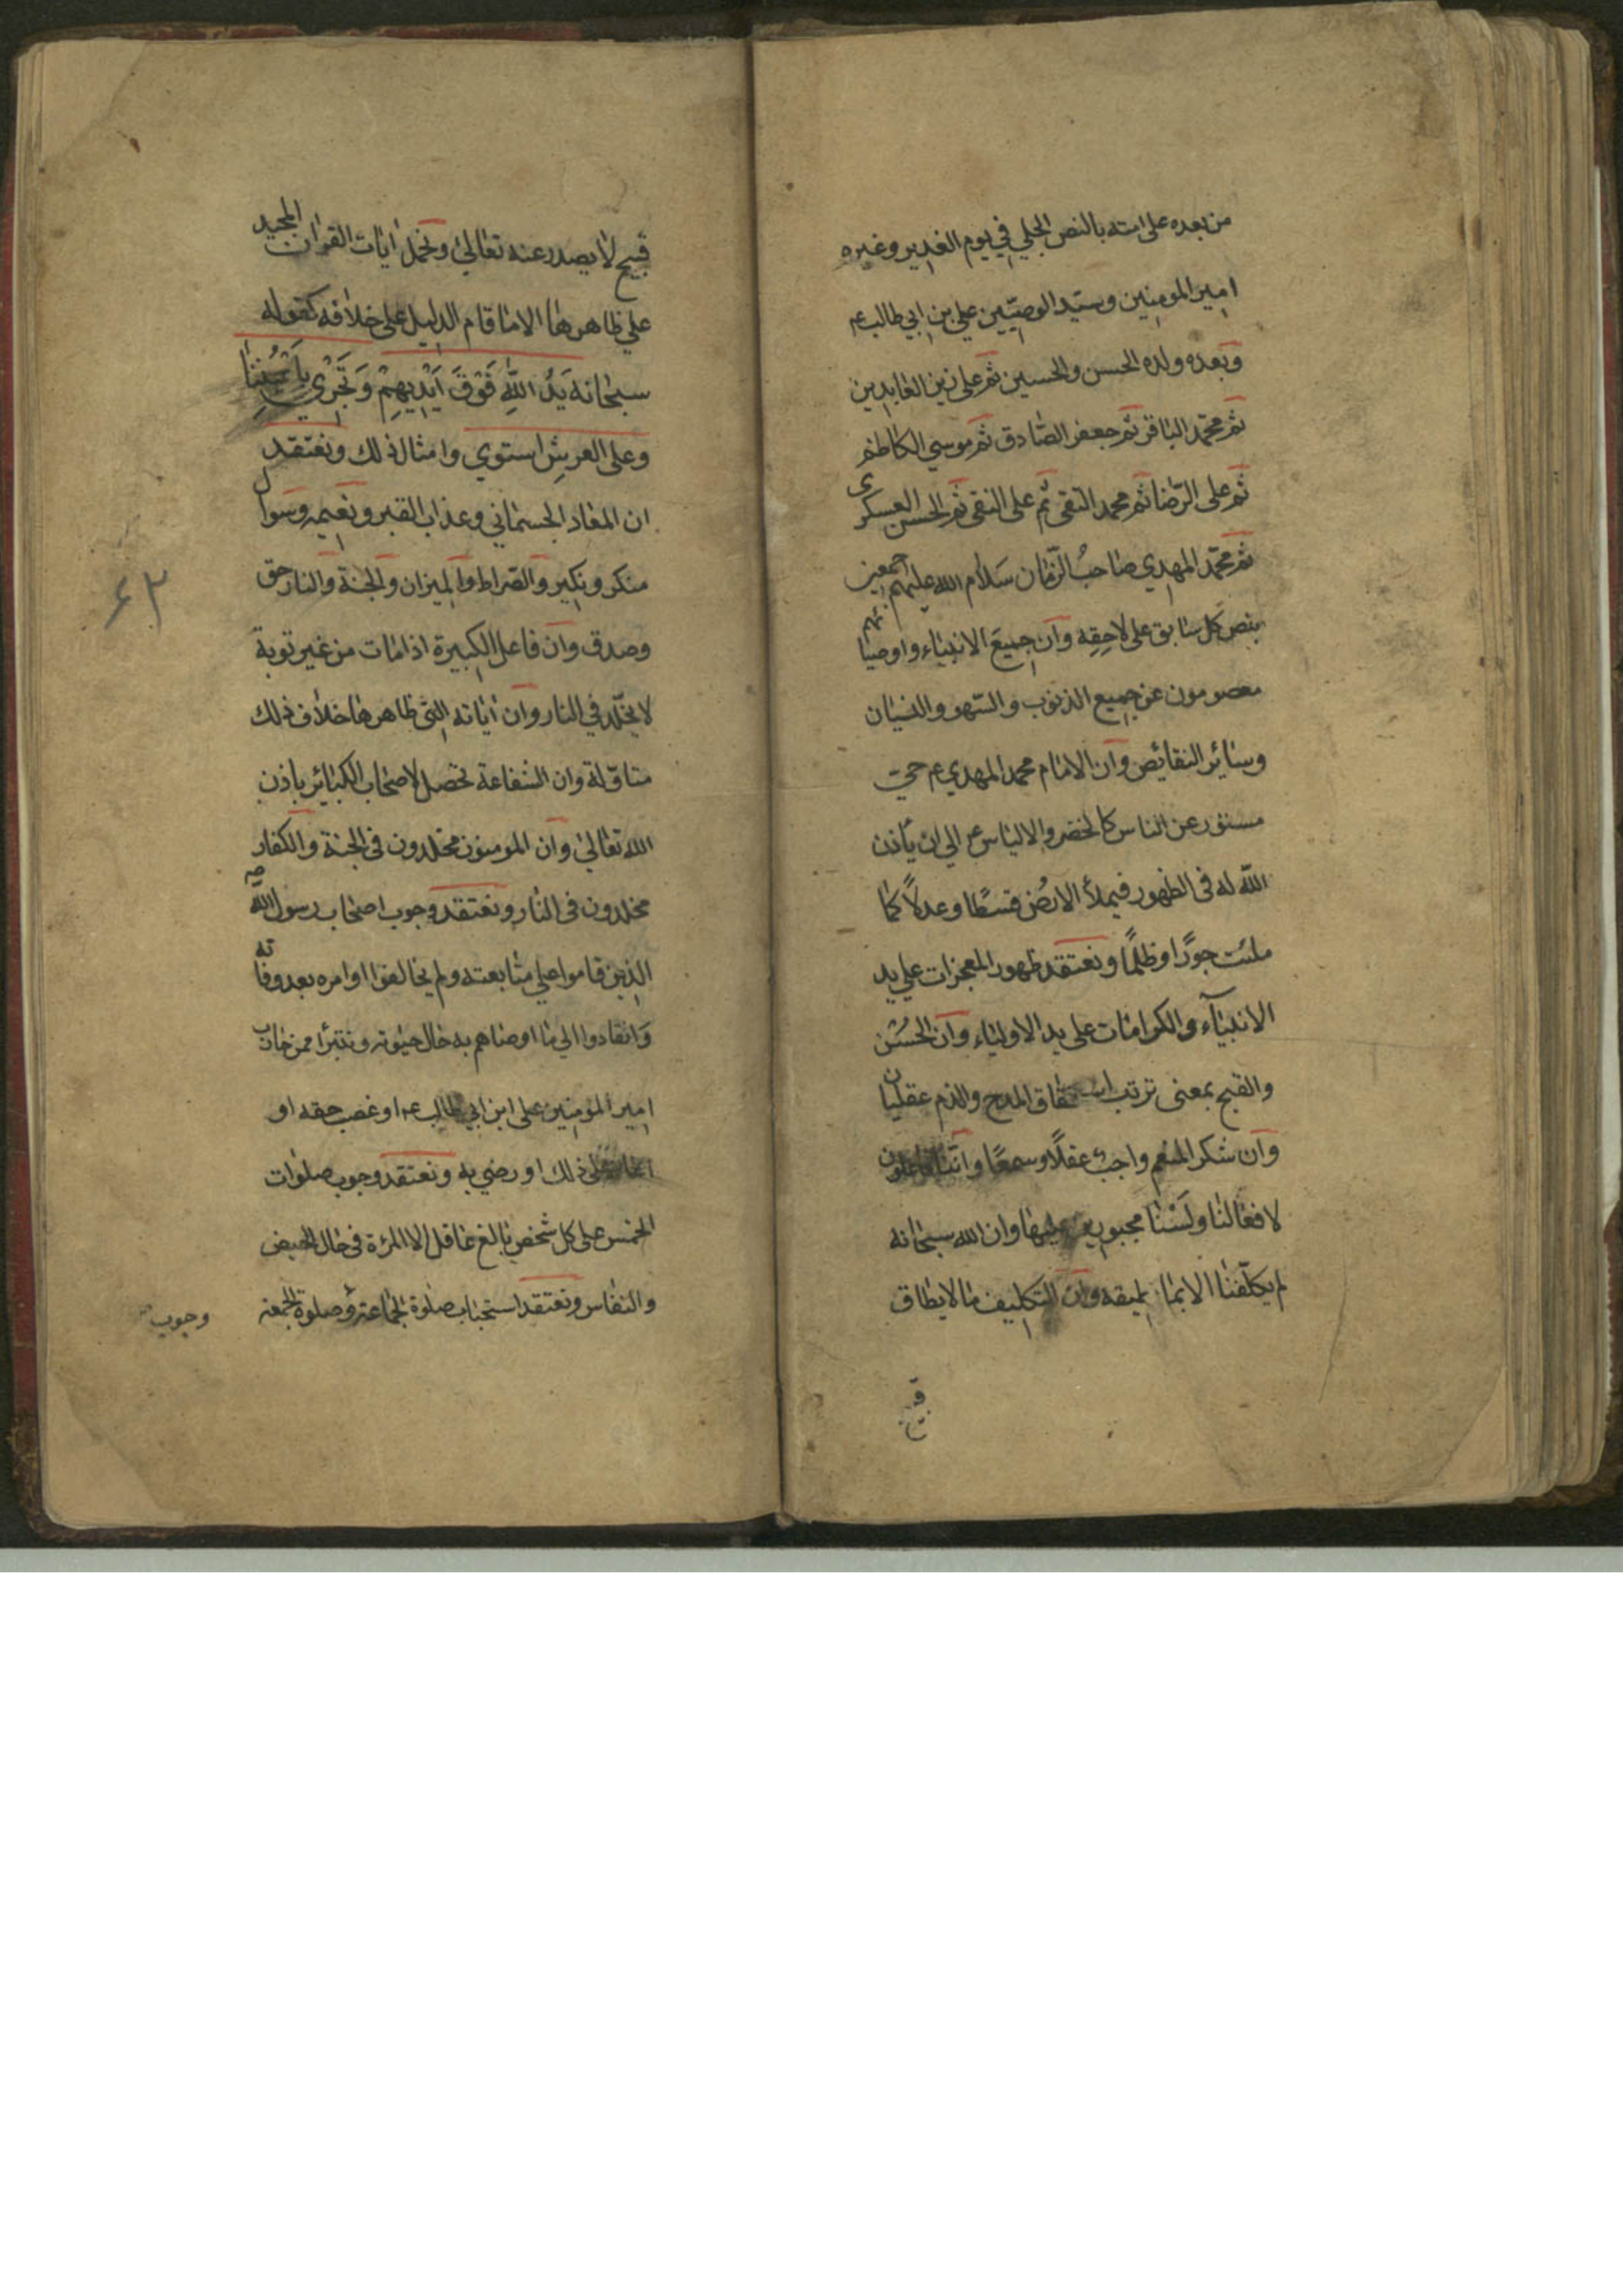 من بعده على امته بالنص الجلي في يوم الغدير وغيره
امير المومنين وسيد الوصيين علي بن ابي طالب عم
وبعده ولده الحسن والحسين ثم علي زين العابدين
ثم محمد الباقر ثم جعفر الصادق ثم موسي الكاظم
ثم على الرضا ثم محمد التقى ثم على النقى ثم الحسن العسكرى
ثم محمد المهدي صاحب الزمان سلام الله عليهم اجمعين
بنص كل سابق على لاحقه وان جميع الانبياء واوصيائهم
معصومون عن جميع الذنوب والسهو والنسيان
وسائر النقائص وان الامام محمد المهدي عم حي
مستور عن الناس كالخضر والالياس عم الي ان يأذن
الله له في الظهور فيملأ الارض قسطا وعدلا كما
ملئت جورا وظلما ونعتقد ظهور المعجزات علي يد
الانبيآء والكرامات على يد الاولياء وان الحسن
والقبح بمعنى ترتب استحقاق المدح والذم عقليان
وان شكر المنعم واجب عقلا وسمعا واننا فاعلون
لافعالنا ولسنا مجبورين عليها وان الله سبحانه
لم يكلفنا الا بما نطيقه وان التكليف ما لا يطاق
قبيح
قبيح لا يصدر عنه تعالي ونحمل ايات القران المجيد
علي ظاهرها الا ما قام الدليل على خلافه كقوله
سبحانه يَدُ اللّهِ فَوْقَ اَيْدِيهِمْ وَتَجْرِي بِاَعْيُنِنا
وعلى العرش استوي وامثال ذلك ونعتقد
ان المعاد الجسماني وعذاب القبر ونعيمه وسوال
منكر ونكير والصراط والميزان والجنة والنار حق
وصدق وان فاعل الكبيرة اذا مات من غير توبة
لا يخلد في النار وان اياته التي ظاهرها خلاف ذلك
متاولة وان الشفاعة تحصل لاصحاب الكبائر باذن
الله تعالي وان المومنون مخلدون في الجنة والكفار
مخلدون في النار ونعتقد وجوب اصحاب رسول الله صه
الذين قاموا علي متابعته ولم يخالفوا اوامره بعد وفاته
وانقادوا الي ما اوصاهم به حال حيوته ونتبرا ممن حارب
امير المومنين على ابن ابي طالب عم او غصب حقه او
اعان على ذلك او رضي به ونعتقد وجوب صلوات
الخمس على كل شخص بالغ عاقل الا المرءة في حال الحيض
والنفاس ونعتقد استحباب صلوة الجماعة وصلوة الجمعة
وجوب
٦٢